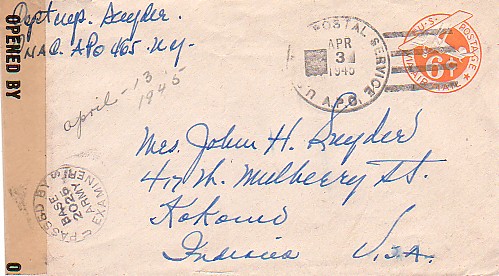 Snyder.
A.P.O 465. N.Y.
OPENED BY
April - 13
1945
POSTAL SERVICE
APR
3
1945
U.S. A.P.O.
U.S. POSTAGE
6¢
VIA AIR MAIL
Mrs. John H. Snyder
417 N. Mulberry St.
Kokomo
Indiana U.S.A.
PASSED BY
BASE
ARMY
EXAMINER